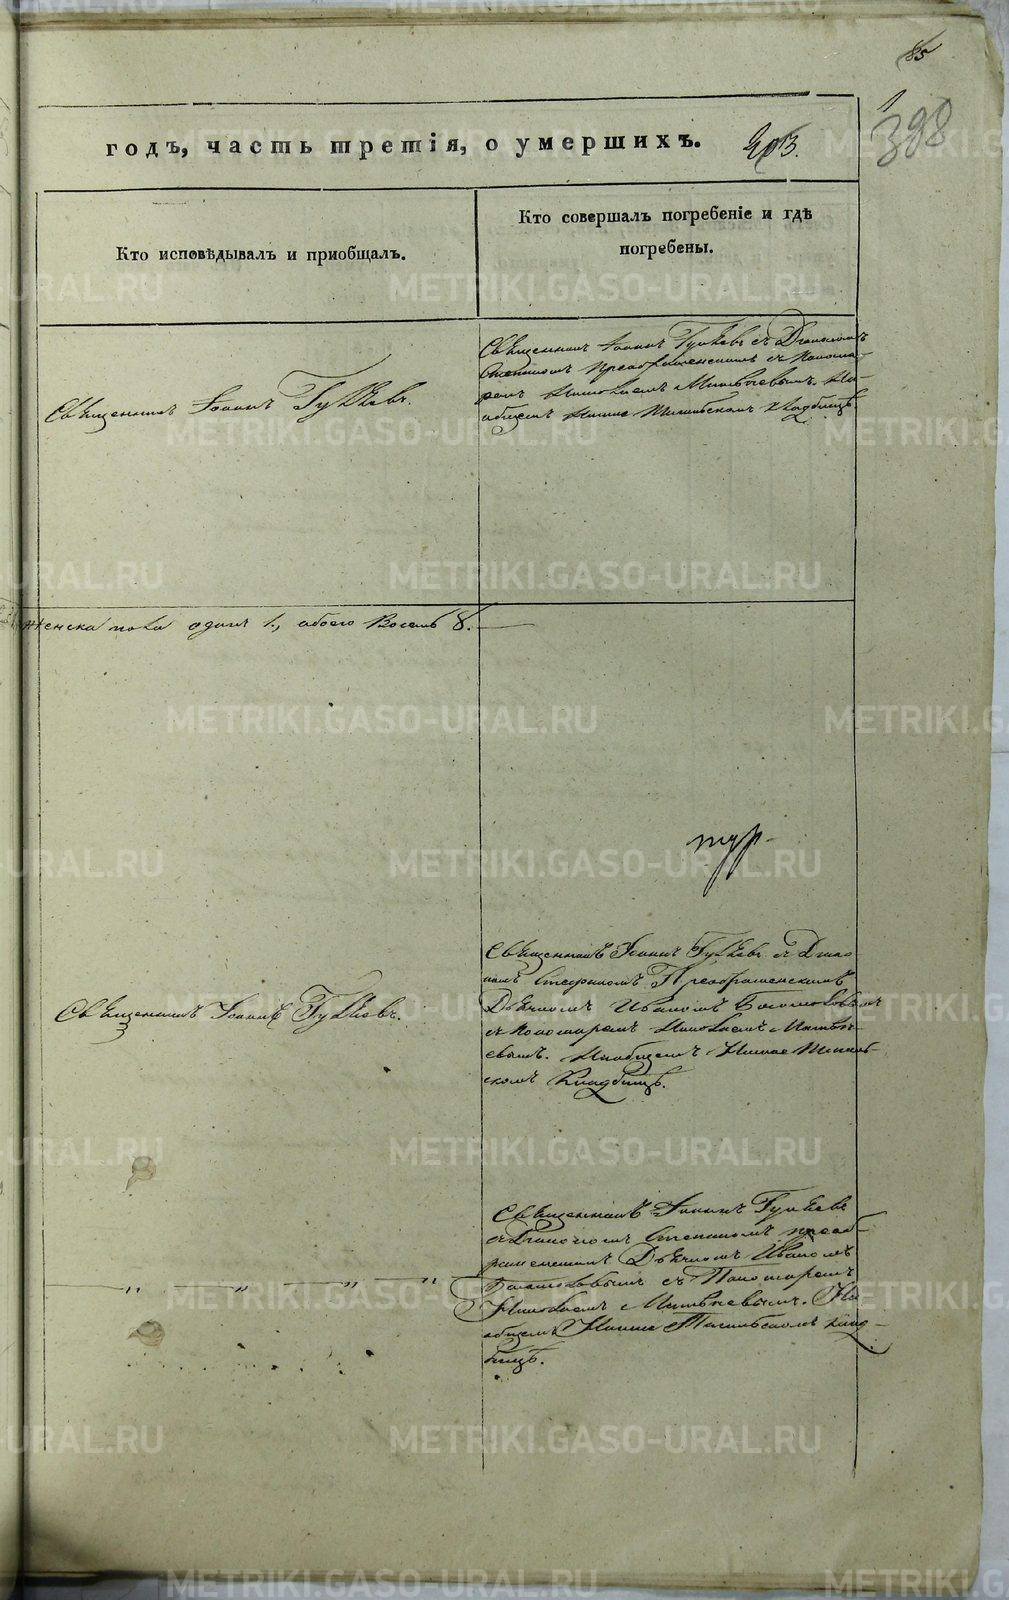 85
398
годъ, часть третія, о умершихъ.
Кто исповѣдывалъ и приобщалъ.
Кто совершалъ погребеніе и гдѣ
погребены.
Священникъ Іоаннъ Гуляевъ.
Священникъ Іоаннъ Гуляевъ съ Діакономъ
Преображенскимъ съ Понома-
ремъ Николаемъ Матвѣевымъ. На
общемъ Нижне Тагильскомъ кладбищѣ.
женска пола одинъ 1, обоего восемь 8.
Священникъ Іоаннъ Гуляевъ.
Священникъ Іоаннъ Гуляевъ съ Діако
номъ Стефаномъ Преображенскимъ
Дьячкомъ Иваномъ
съ Пономаремъ Николаемъ Матвѣ-
евымъ. На общемъ Нижне Тагиль-
скомъ Кладбищѣ.
Священникъ Іоаннъ Гуляевъ
съ Діакономъ Стефаномъ Преоб-
раженскимъ Дьячкомъ Иваномъ
съ Пономаремъ
Николаемъ Матвѣевымъ. На
общемъ Нижне Тагильскомъ клад-
бищѣ.
METRIKI.GASO-URAL.RU